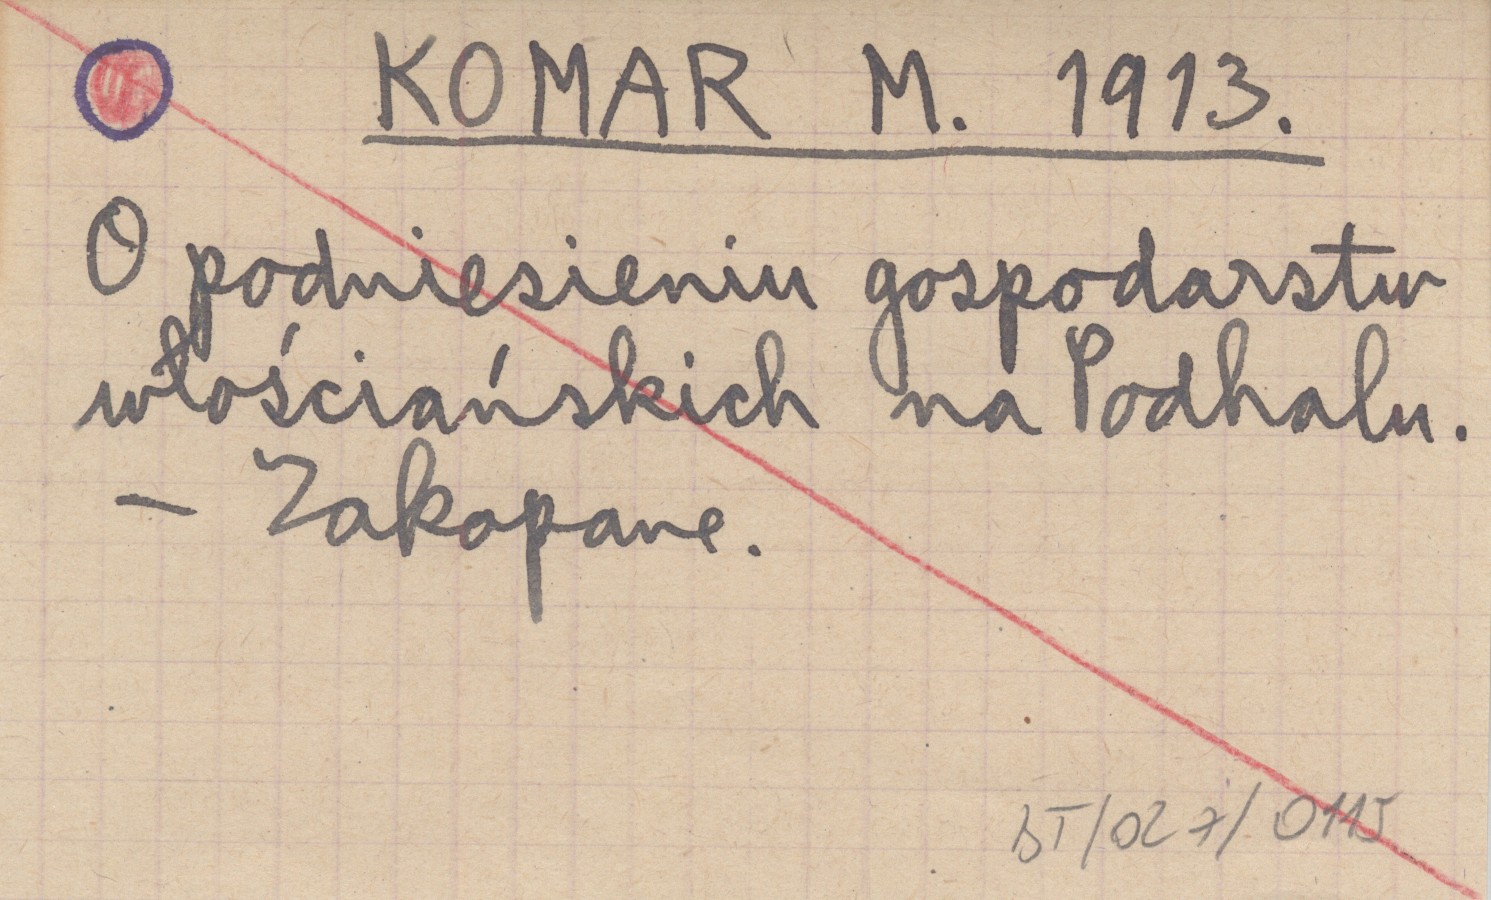 KOMAR M. 1913.
O podniesieniu gospodarstw
włościańskich na Podhalu.
- Zakopane.
BT/027/0115